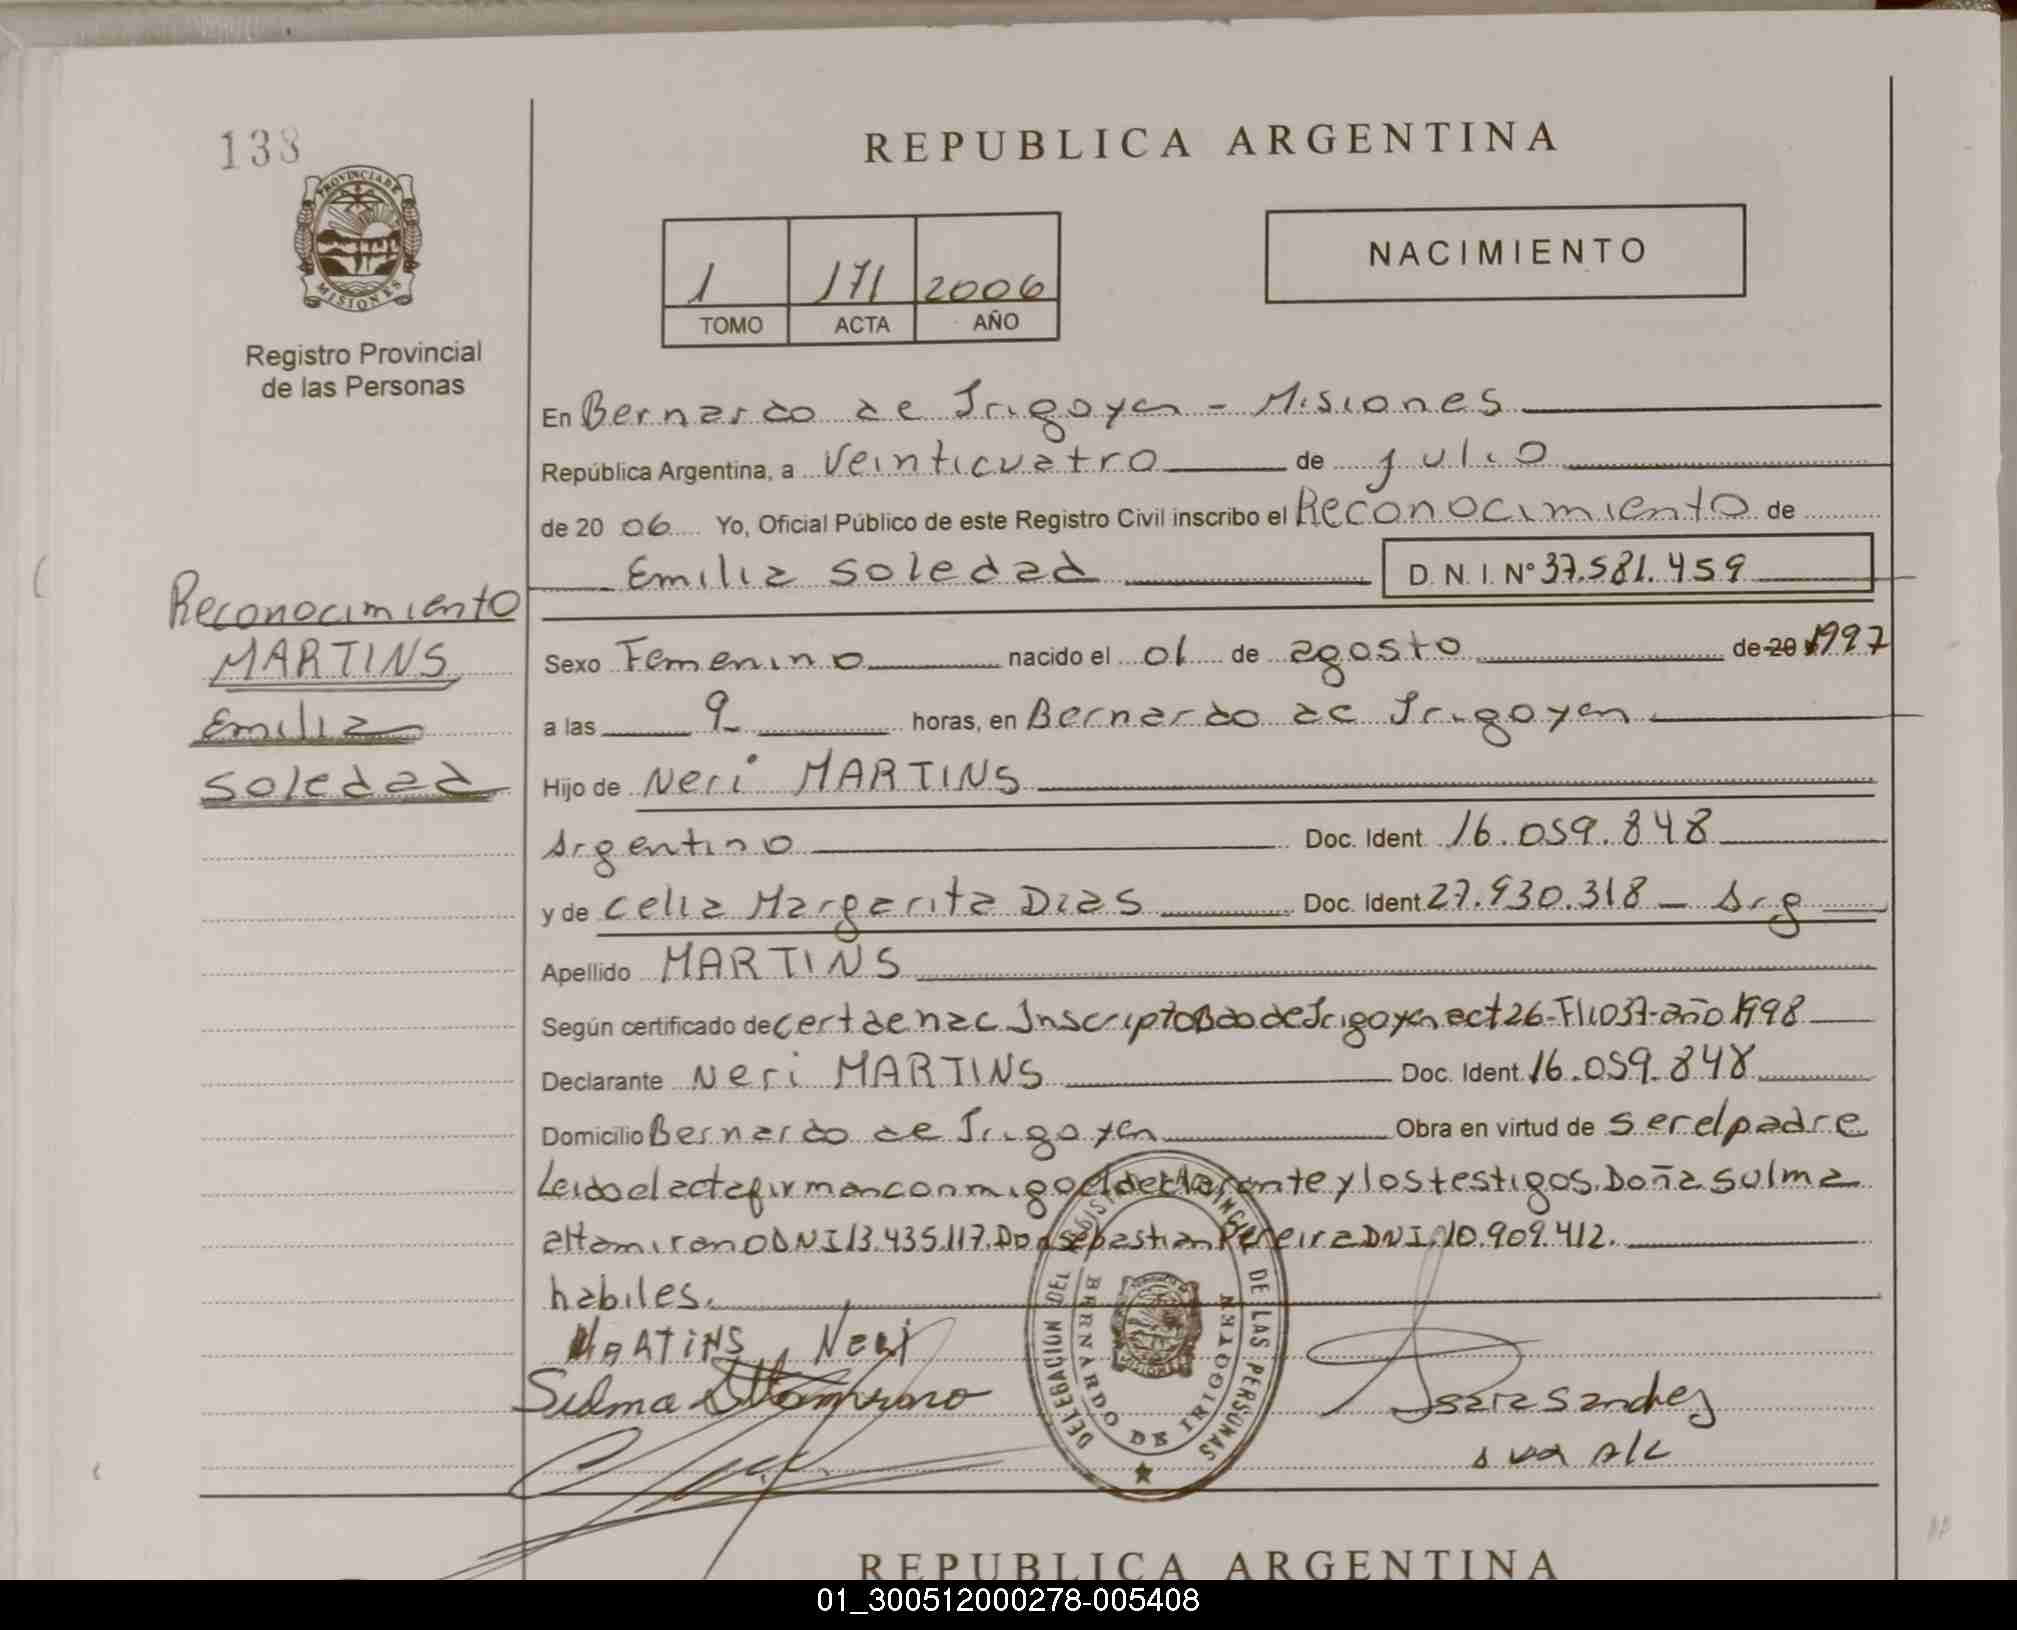 138
REPUBLICA ARGENTINA
PROVINCIA DE
MISIONES
Registro Provincial
de las Personas
1 171 2006
TOMO ACTA AÑO
NACIMIENTO
En Bernardo de Irigoyen - Misiones
República Argentina, a veinticuatro de julio
de 20 06 Yo, Oficial Público de este Registro Civil inscribo el Reconocimiento de
Emilia Soledad D.N.I. N° 37.581.459
Reconocimiento
MARTINS
Emilia
Soledad
Sexo Femenino nacido el 01 de agosto de 20 1997
a las 9 horas, en Bernardo de Irigoyen
Hijo de Neri MARTINS
Argentino Doc. Ident. 16.059.848
y de Celia Margarita Dias Doc. Ident. 27.930.318 - Arg
Apellido MARTINS
Según certificado de cert de nac Inscripto Bdo de Irigoyen act 26-Fll 037-año 1998
Declarante Neri MARTINS Doc. Ident. 16.059.848
Domicilio Bernardo de Irigoyen Obra en virtud de ser el padre
Leido el acta firman conmigo el declarante y los testigos. Doña Sulma
altamirano DNI 13.435.117. Don Sebastian Pereira DNI 10.909.412.
habiles.
MARTINS Neri
Sulma Altamirano
DELEGACION DEL REGISTRO PROVINCIAL DE LAS PERSONAS
BERNARDO DE IRIGOYEN
Sanchez
REPUBLICA ARGENTINA
01_300512000278-005408